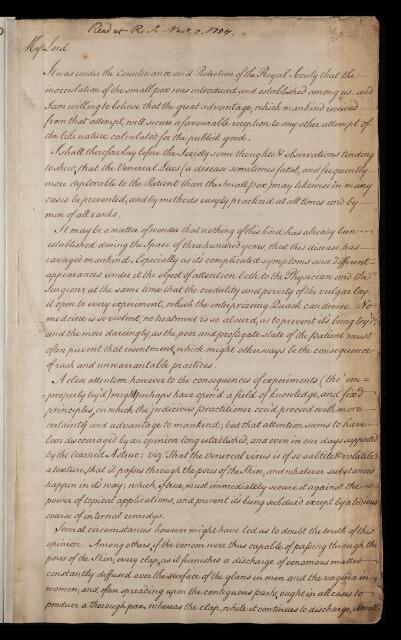 Read at R.S. Nov. 7. 1754.
My Lord
It was under the Countenance and Protection of the Royal Society that the
inocculation of the small pox was introduced and established among us, and
I am willing to believe that the great advantage, which mankind received
from that attempt, will secure a favourable reception to any other attempt of
the like nature calculated for the publick good.
I shall therefore lay before the Society some thoughts & observations tending
to shew, that the Venereal Lues (a disease sometimes fatal, and frequently
more deplorable to the Patient than the small pox) may likewise in many
cases be prevented, and by methods easily practic'd at all times and by
men of all ranks.
It may be a matter of wonder that nothing of this kind has already been
established during the Space of three hundred years, that this disease has
ravaged mankind. Especially as its complicated symptoms and different
appearances under it the object of attention both to the Physician and the
Surgeon; at the same time that the credulity and poverty of the vulgar lay
it open to every experiment, which the enterprizing Quack can devise. No
medicine is so violent, no treatment is so absurd, as to prevent its being try'd,
and the more daringly, as the poor and profligate state of the patient must
often prevent that resentment, which might otherways be the consequence
of rash and unwarrantable practices.
A close attention however to the consequences of experiments (tho' im=
=properly try'd) might perhaps have open'd a field of knowledge, and fix'd
principles, on which the judicious practitioner could proceed with more
certainty and advantage to mankind; but that attention seems to have
been discouraged by an opinion long established, and even in our days supported
by the learned Astruc: viz. That the venereal virus is of so subtile & volatile
a texture, that it passes through the pores of the Skin, and whatever substances
happen in its way; which, if true, must immediately secure it against the
power of topical applications, and prevent its being subdued except by a tedious
course of internal remedys.
Several circumstances however might have led us to doubt the truth of this
opinion. Among others, if the venom were thus capable of passing through the
pores of the Skin, every clap, as it furnishes a discharge of venomous matter
constantly diffused over the surface of the glans in men and the vagina in
women, and often spreading upon the contiguous parts, ought in all cases to
produce a thorough pox, whereas the clap, while it continues to discharge,